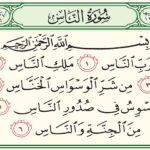 سُورَةُ النَّاسِ
بِسْمِ اللَّهِ الرَّحْمَنِ الرَّحِيمِ
بِرَبِّ النَّاسِ ١ مَلِكِ النَّاسِ
مِن شَرِّ الْوَسْوَاسِ الْخَنَّاسِ
سْوِسُ فِي صُدُورِ النَّاسِ
مِنَ الْجِنَّةِ وَالنَّاسِ ٦